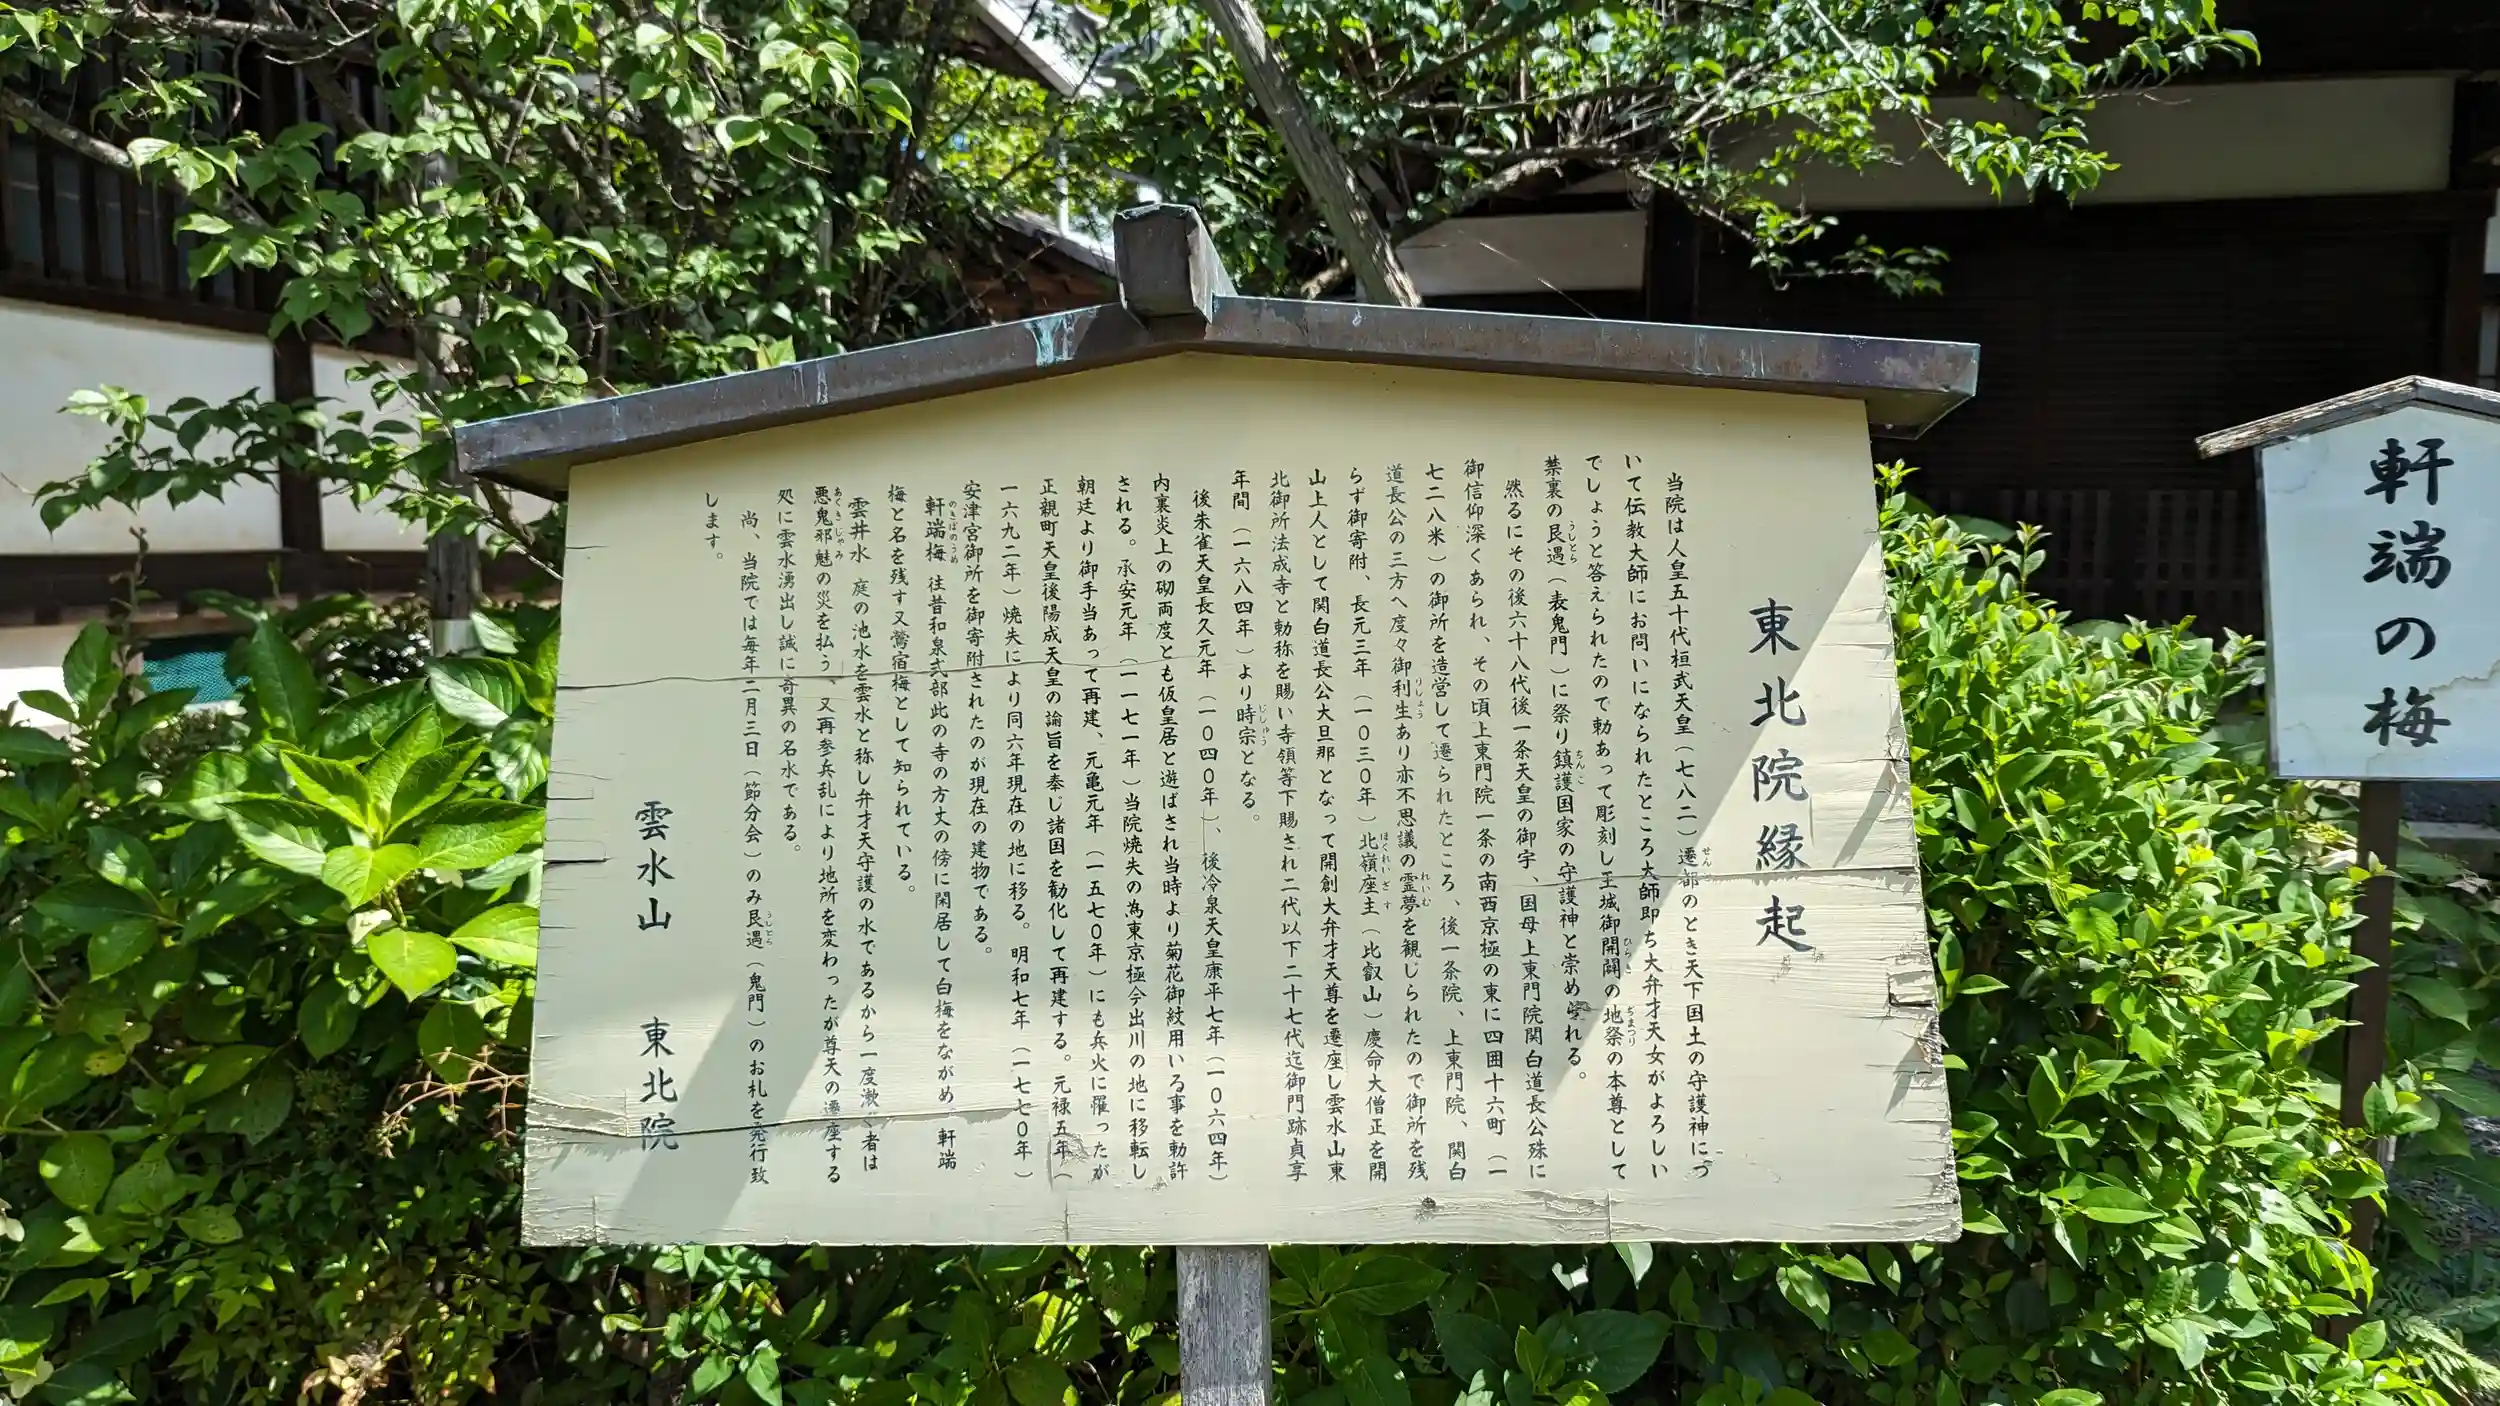 東北院縁起
当院は人皇五十代桓武天皇(七八二)遷都のとき天下国土の守護神につ
いて伝教大師にお問いになられたところ大師即ち大弁才天女がよろしい
でしょうと答えられたので勅あって彫刻し王城御開闢の地祭の本尊として
禁裏の艮遇(表鬼門)に祭り鎮護国家の守護神と崇められる。
然るにその後六十八代後一条天皇の御宇、国母上東門院関白道長公殊に
御信仰深くあられ、その頃上東門院一条の南西京極の東に四囲十六町(一
七二八米)の御所を造営して遷られたところ、後一条院、上東門院、関白
道長公の三方へ度々御利生あり亦不思議の霊夢を観じられたので御所を残
らず御寄附、長元三年(一〇三〇年)北嶺座主(比叡山)慶命大僧正を開
山上人として関白道長公大旦那となって開創大弁才天尊を遷座し雲水山東
北御所法成寺と勅称を賜い寺領等下賜され二代以下二十七代迄御門跡貞享
年間(一六八四年)より時宗となる。
後朱雀天皇長久元年(一〇四〇年)、後冷泉天皇康平七年(一〇六四年)
内裏炎上の砌両度とも仮皇居と遊ばされ当時より菊花御紋用いる事を勅許
される。承安元年(一一七一年)当院焼失の為東京極今出川の地に移転し
朝廷より御手当あって再建、元亀元年(一五七〇年)にも兵火に罹ったが
正親町天皇後陽成天皇の論旨を奉じ諸国を勧化して再建する。元禄五年(
一六九二年)焼失により同六年現在の地に移る。明和七年(一七七〇年)
安津宮御所を御寄附されたのが現在の建物である。
軒端梅 往昔和泉式部此の寺の方丈の傍に閑居して白梅をながめ 軒端
梅と名を残す又鶯宿梅として知られている。
雲井水 庭の池水を雲水と称し弁才天守護の水であるから一度漱ぐ者は
悪鬼邪魅の災を払う、又再参兵乱により地所を変わったが尊天の遷座する
処に雲水湧出し誠に奇異の名水である。
尚、当院では毎年二月三日(節分会)のみ艮遇(鬼門)のお札を発行致
します。
雲水山 東北院
軒端の梅